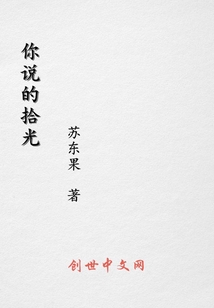 你说的拾光
苏东果 著
创世中文网